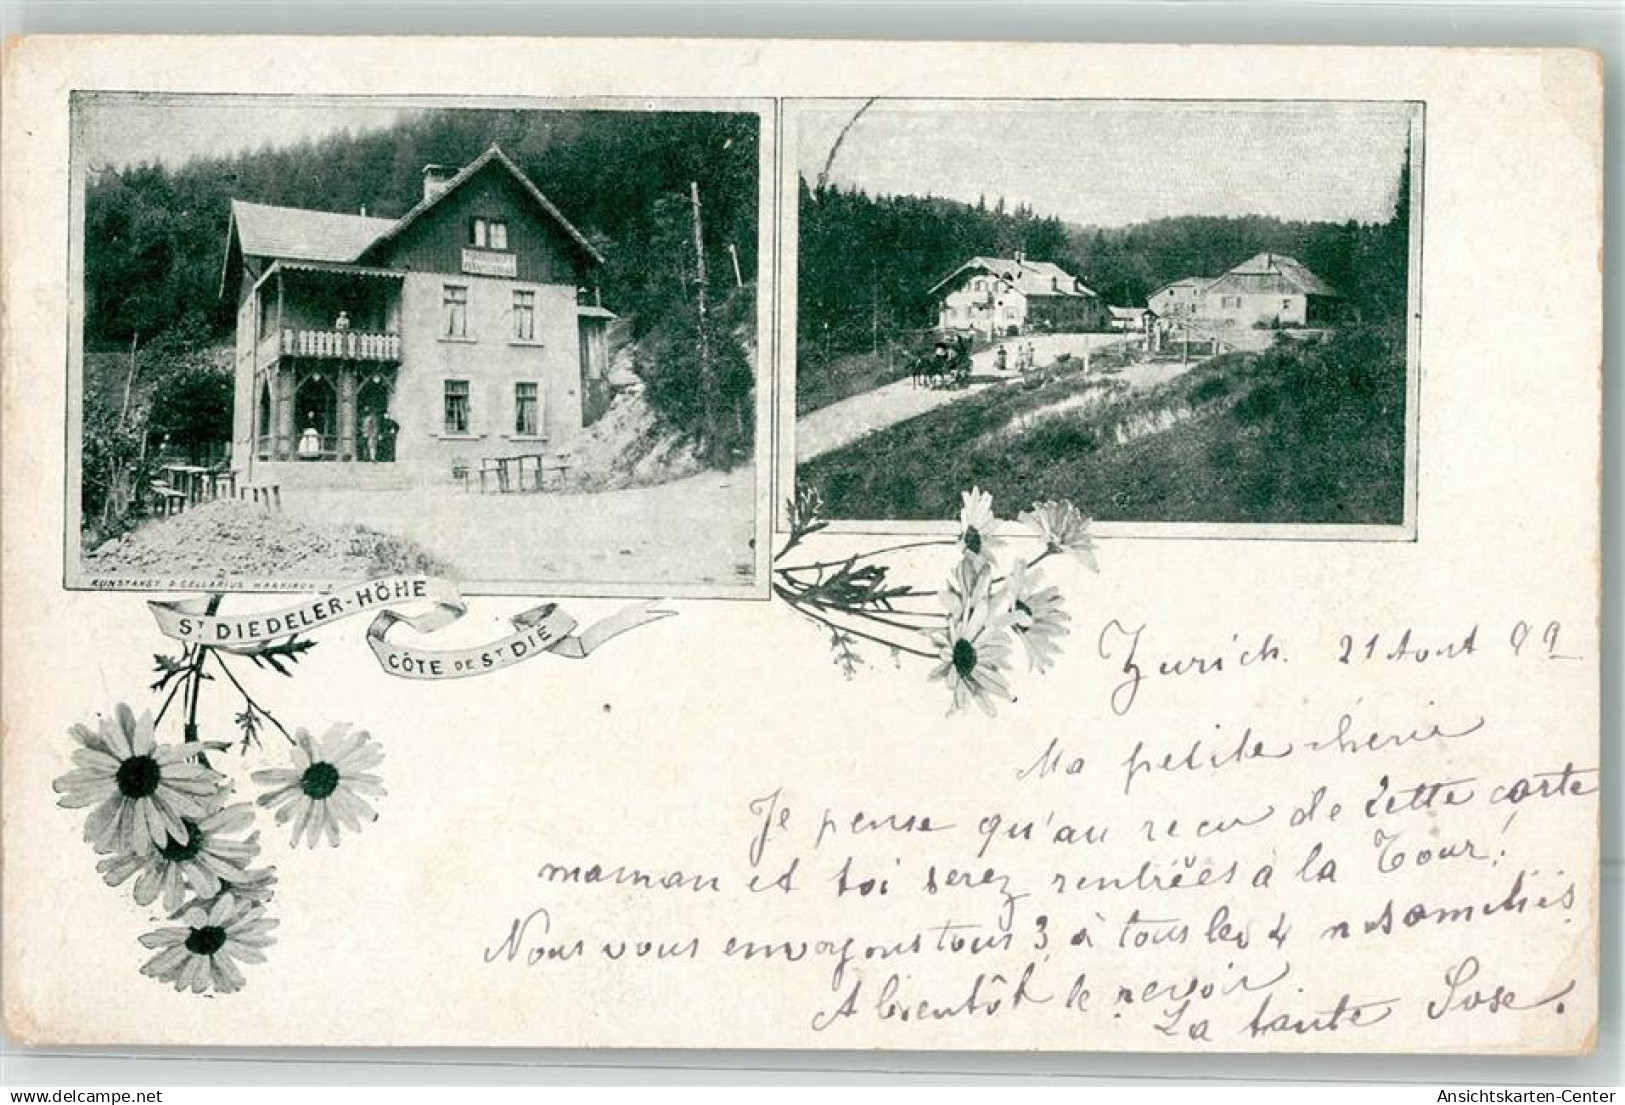 KUNSTANST. D. CELLARIUS MARKIRCH
ST DIEDELER-HÖHE
CÔTE DE ST DIÉ
Zurich. 21 Aout 99
Ma petite chérie
Je pense qu'au recu de cette carte
maman et toi serez rentrées à la Tour!
Nous vous envoyons tous 3, à tous les 4 nos amitiés
A bientôt le revoir.
La tante Rose.
delcampe.net
Ansichtskarten-Center